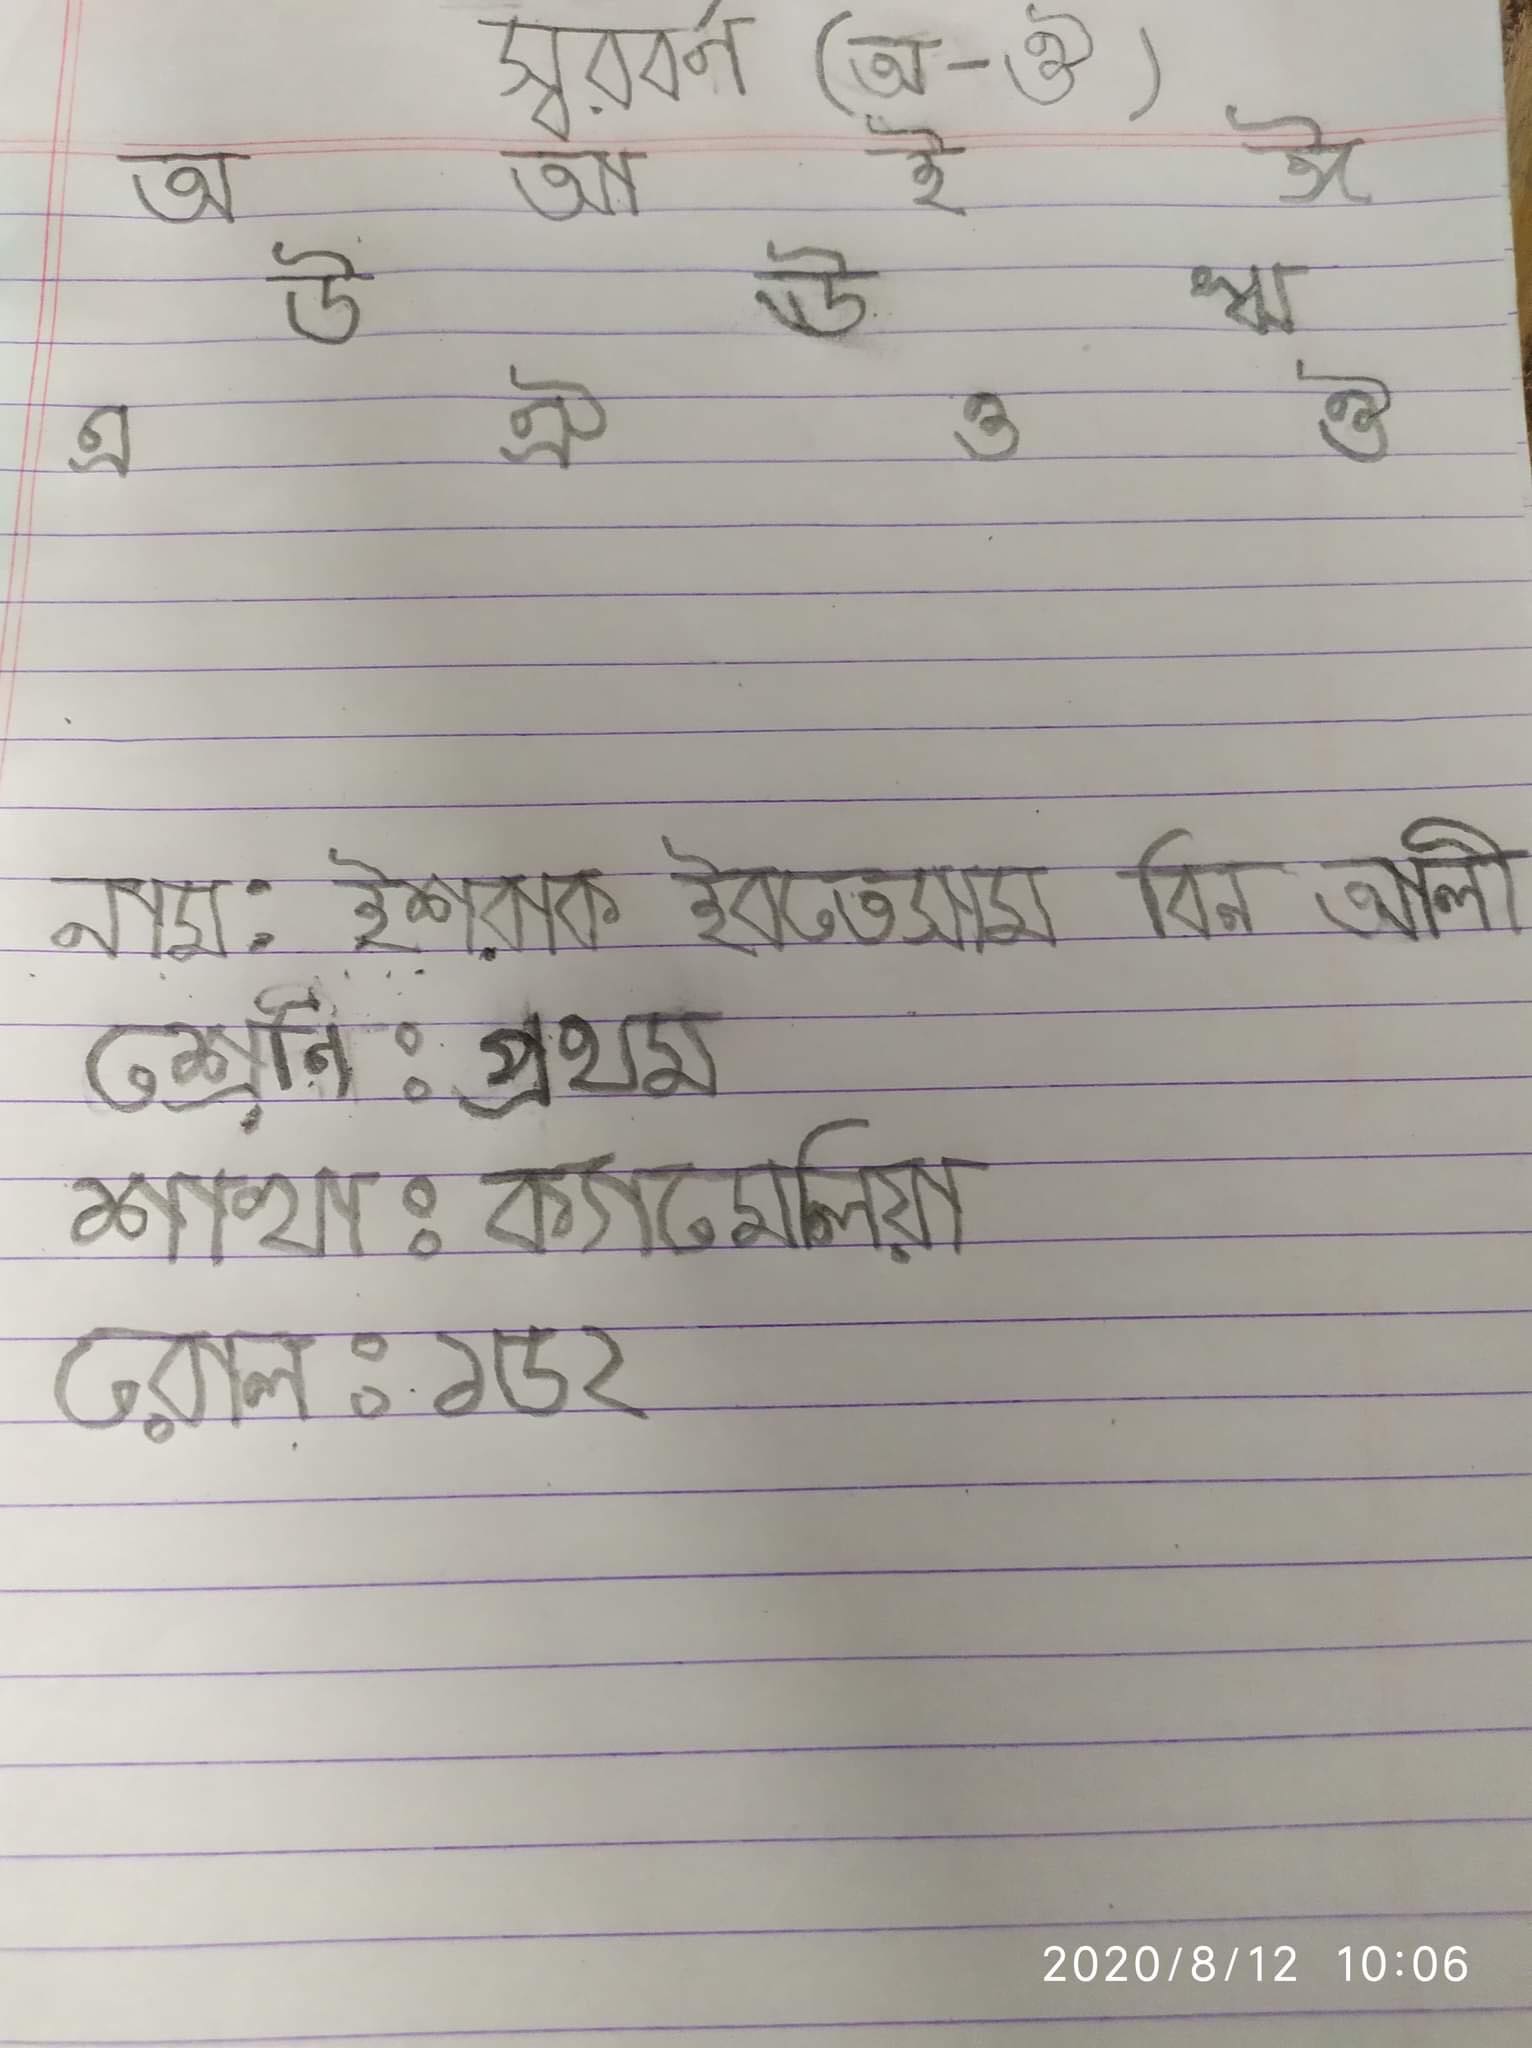 স্বরবর্ন (অ-ঔ)
অ আ ই ঈ
উ ঊ ঋ
এ ঐ ও ঔ
নাম: ইশরাক ইবতেসাম বিন আলী
শ্রেনি: প্রথম
শাখা: ক্যামেলিয়া
রোল: ১৬২
2020/8/12 10:06